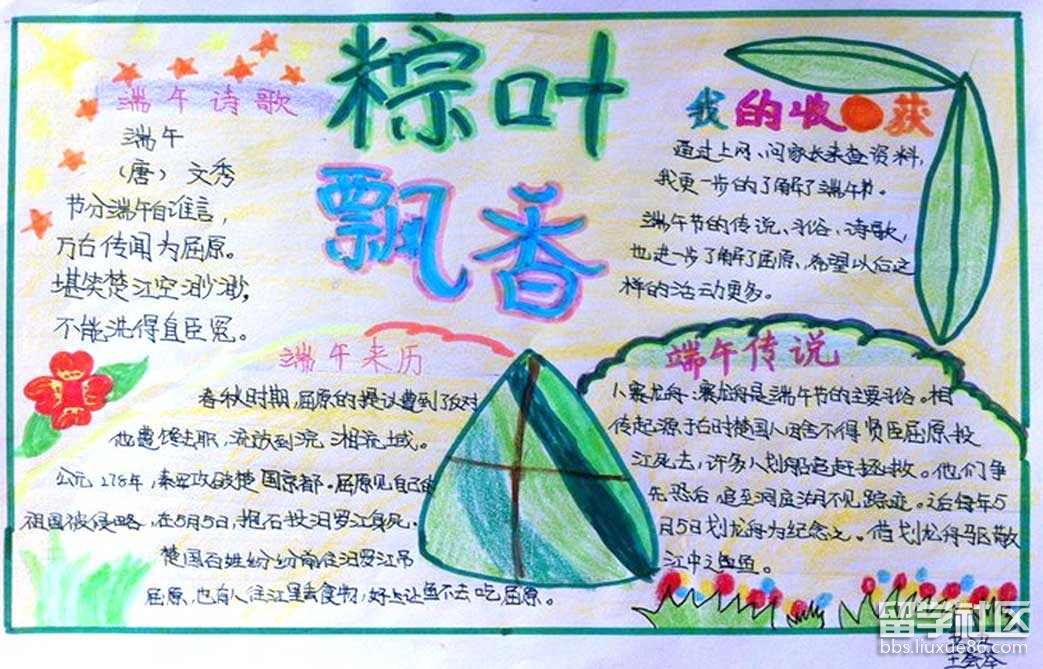 粽叶
飘香
端午诗歌
端午
（唐）文秀
节分端午自谁言，
万古传闻为屈原。
堪笑楚江空渺渺，
不能洗得直臣冤。
我的收获
通过上网、问家长来查资料，
我更一步的了解了端午节。
端午节的传说、习俗、诗歌，
也进一步了解了屈原，希望以后这
样的活动更多。
端午来历
春秋时期，屈原的提议遭到了反对
他遭馋去职，流放到沅、湘流域。
公元278年，秦军攻破楚国京都。屈原见自己的
祖国被侵略，在5月5日，抱石投汨罗江身死，
楚国百姓纷纷前往汨罗江吊
屈原，也有人往江里丢食物，好让鱼不去吃屈原。
端午传说
小赛龙舟：赛龙舟是端午节的主要习俗。相
传起源于古时楚国人因舍不得贤臣屈原投
江死去，许多人划船追赶拯救。他们争
先恐后，追至洞庭湖不见踪迹。之后每年5
月5日划龙舟为纪念之。借划龙舟驱散
江中之鱼。
留学社区
bbs.liuxue86.com